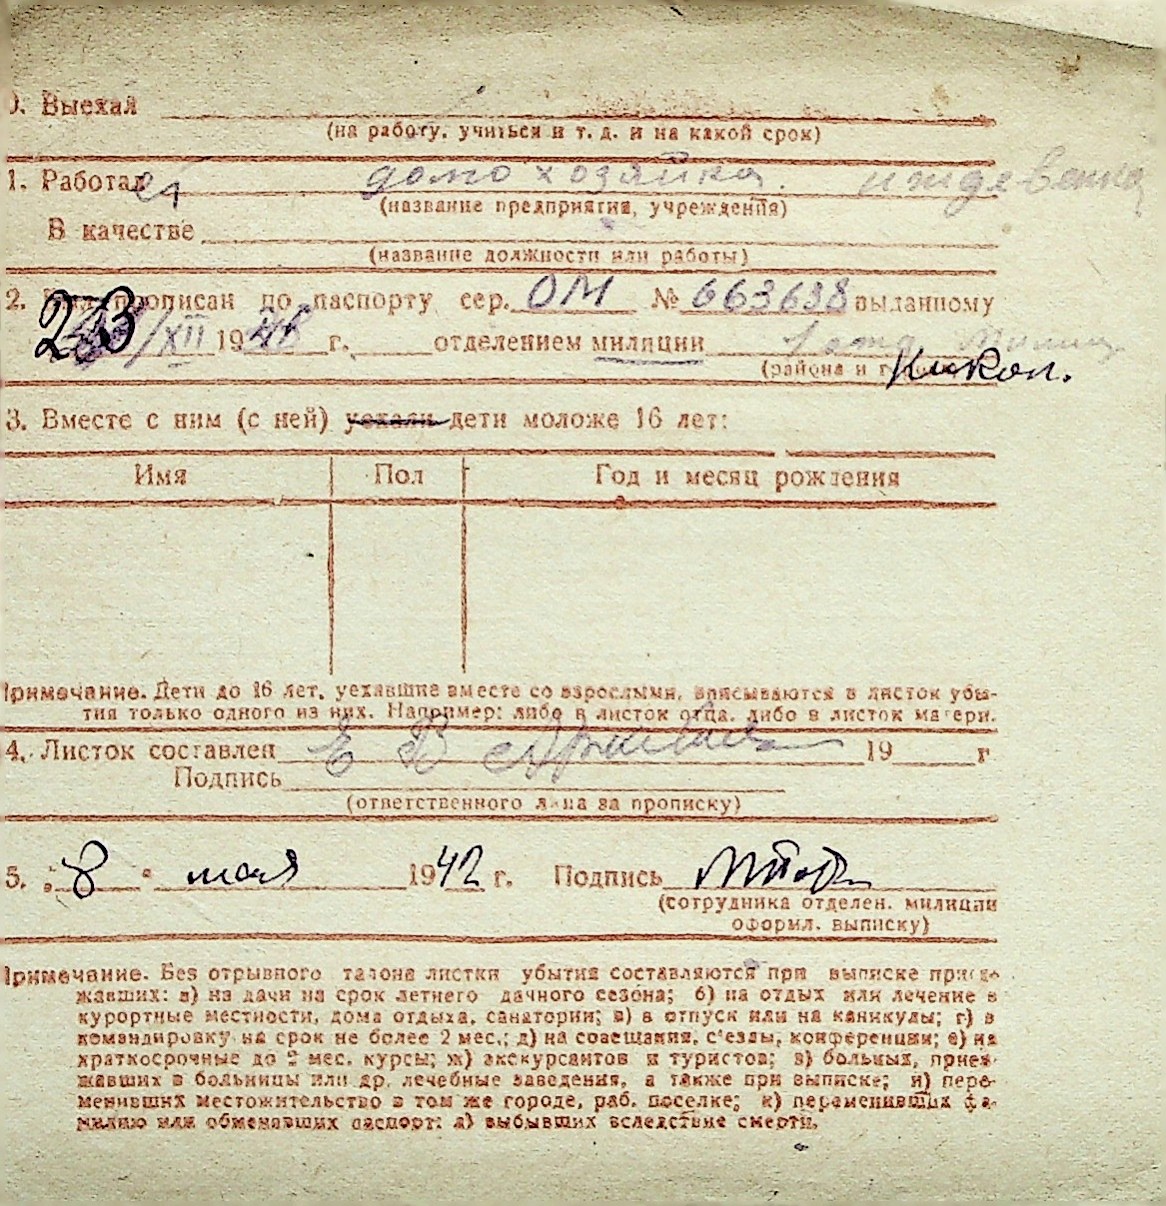 0. Выехал
(на работу, учиться и т. д. и на какой срок)
1. Работал домохозяйка. иждевенка
(название предприятия, учреждения)
В качестве
(название должности или работы)
2. Был прописан по паспорту сер. ОМ № 663638 выданному
/XII 19 г. отделением милиции 1 отд.
(района и Никол.
3. Вместе с ним (с ней) уехали дети моложе 16 лет:
Имя Пол Год и месяц рождения
Примечание. Дети до 16 лет, уехавшие вместе со взрослыми, вписываются в листок убы-
тия только одного из них. Например: либо в листок отца, либо в листок матери.
4. Листок составлен Е В 19 г
Подпись
(ответственного лица за прописку)
5. „8" мая 1942 г. Подпись
(сотрудника отделен. милиции
оформл. выписку)
Примечание. Без отрывного талона листки убытия составляются при выписке приез-
жавших: а) на дачи на срок летнего дачного сезона; б) на отдых или лечение в
курортные местности, дома отдыха, санатории; в) в отпуск или на каникулы; г) в
командировку на срок не более 2 мес.; д) на совещания, с'езды, конференции; е) на
краткосрочные до 2 мес. курсы; ж) экскурсантов и туристов; з) больных, приез-
жавших в больницы или др. лечебные заведения, а также при выписке; и) пере-
менивших местожительство в том же городе, раб. поселке; к) переменивших фа-
милию или обменявших паспорт; л) выбывших вследствие смерти.